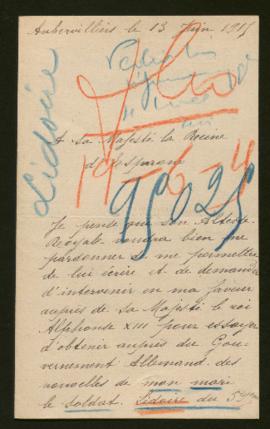 Aubervilliers le 13 Juin 1915
Lidoire
A sa Majesté la Reine
d'Espagne
19-6-4
95025
Je pense que son Altesse
Royale voudra bien me
pardonner de me permettre
de lui écrire et de demander
d'intervenir en ma faveur
auprès de sa Majesté le roi
Alphonse XIII pour essayer
d'obtenir auprès du Gou-
vernement Allemand des
nouvelles de mon mari
le soldat Lidoire du 5me